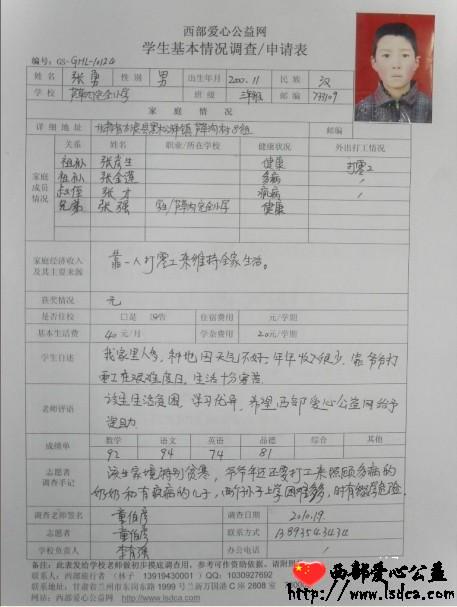 西部爱心公益网
学生基本情况调查/申请表
编号: GS-GML-1012Q
姓名 张勇 性别 男 出生年月 2000.11 民族 汉
学校 完全小学 班级 三年级 邮编 733109
家庭情况
详细地址 黑松驿镇 8组 邮编
家庭成员情况 关系 姓名 职业/所在学校 健康状况 外出打工情况
张彦生 健康 打零工
张金莲 多病
张才 疯病
兄弟 张强 完全小学 健康
家庭经济收入及其主要来源 靠一人打零工来维持全家生活。
获奖情况 无
是否住校 口是 口否 住宿费用 元/学期
基本生活费 40元/月 学杂费用 20元/学期
学生自述 我家里人多,种地因天气不好,年年收入很少,靠爷爷打
零工在艰难度日,生活十分寒苦
老师评语 该生生活贫困,学习优异,希望西部爱心公益网给予
资助
成绩单 数学 语文 英语 品德 综合 其他
92 94 74 81
志愿者调查手记 该生家境特别贫寒,爷爷年迈还要打工来照顾多病的
奶奶和有疯病的儿子,两个孙子上学困难多,时有辍学危险.
调查老师签名 董伯彦 调查日期 2010.19.
志愿者 董伯彦 联系方式 13893543434
学校负责人 李有 办公电话 /
备注:此表发给学校老师做初步摸底调查用,参考可作资助依据。请附照
联系人:西部旅行者 (林子 13919430001) QQ:1030927692
地址:甘肃省兰州市东岗东路1999号兰新万国港C座2808室 7300
www.lsdca.com
西部爱心公益
www.lsdca.com